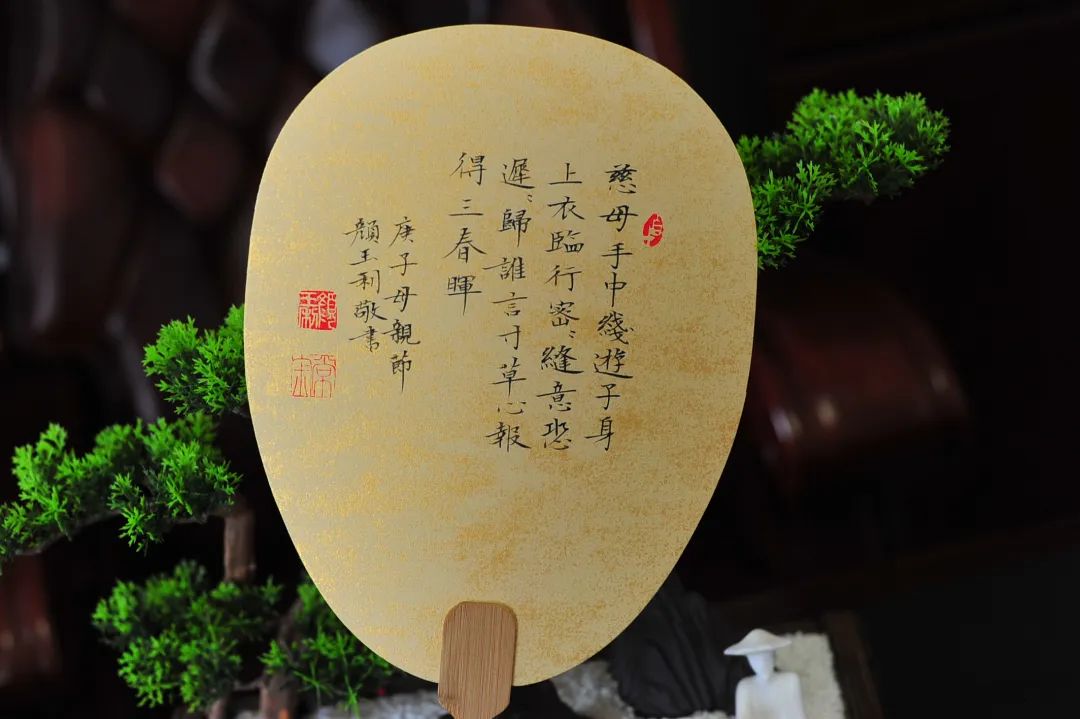 慈母手中綫遊子身
上衣臨行密〻縫意恐
遲〻歸誰言寸草心報
得三春暉
庚子母親節
顏玉利敬書